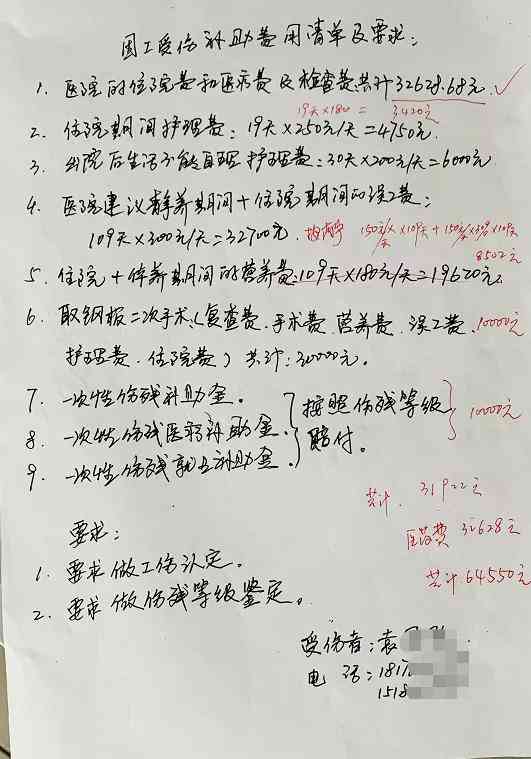 因工受伤补助费用清单及要求:
1. 医院的住院费和医药费及检查费共计32628.68元. ✓
19天×180 = 3420元
2. 住院期间护理费: 19天×250元/天=4750元.
3. 出院后生活不能自理护理费: 30天×200元/天=6000元
4. 医院建议静养期间+住院期间的误工费:
109天×300元/天=32700元.
150元/天×109天+150元/天
8502元
5. 住院+休养期间的营养费:109天×180元/天=19620元.
6. 取钢板二次手术(复查费.手术费.营养费.误工费. 10000元
护理费.住院费)共计:30000元.
7. 一次性伤残补助金.
8. 一次性伤残医药补助金. 按照伤残等级 10000元
9. 一次性伤残就业补助金. 赔付.
共计. 31922元
医药费 32628元
共计 64550元
要求:
1. 要求做工伤认定.
2. 要求做伤残等级鉴定.
受伤者:袁
电话:1817
1518